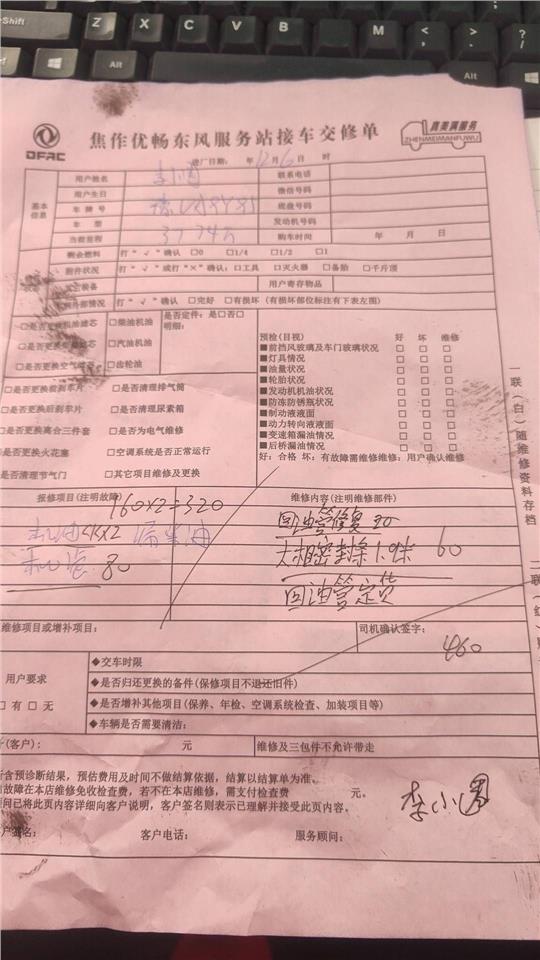 Shift
Alt
Alt
B
N
M
DFAC
焦作优畅东风服务站接车交修单
真美满服务
ZHENMEIMANFUWU
进厂日期: 年 12月6日 时
基本信息
用户姓名
联系电话
用户生日
微信号码
车牌号
底盘号码
车型
发动机号码
当前里程
购车时间 年 月 日
剩余燃料 打"√"确认 □0 □1/4 □1/2 □1
附件状况 打"√"或打"×"确认:□工具 □灭火器 □备胎 □千斤顶
其它装备
用户寄存物品
外部情况 打"√"确认 □完好 □有损坏 (有损坏部位标注有下表左图)
□是否更换机油滤芯 □柴油机油 是否定件: 是□否□
明细:
□汽油机油
□是否更换空气滤芯 □齿轮油
预检(目视) 好 坏 维修
■前挡风玻璃及车门玻璃状况 □ □ □
■灯具情况 □ □ □
■油量状况 □ □ □
■轮胎状况 □ □ □
■发动机机油状况 □ □ □
■防冻防锈瓶状况 □ □ □
■制动液液面 □ □ □
■动力转向液液面 □ □ □
■变速箱漏油情况 □ □ □
■后桥漏油情况 □ □ □
好:合格 坏:有故障需维修维修:用户确认维修
□是否更换前刹车片 □是否清理排气筒
□是否更换后刹车片 □是否清理尿素箱
□是否更换离合三件套 □是否为电气维修
是否更换火花塞 □空调系统是否正常运行
是否清理节气门 □其它项目维修及更换
一联(白)随维修资料存档
报修项目(注明故障) 160x2=320
维修内容(注明维修部件)
回油管修复 30
漏柴油
80
60
回油管定货
维修项目或增补项目:
司机确认签字:
460
用户要求
□有 □无
◆交车时限
◆是否归还更换的备件(保修项目不退还旧件)
◆是否增补其他项目(保养、年检、空调系统检查、加装项目等)
◆车辆是否需要清洁:
(客户): 元
维修及三包件不允许带走
含预诊断结果,预估费用及时间不做结算依据,结算以结算单为准。
故障在本店维修免收检查费,若不在本店维修,需支付检查费 元。
问已将此页内容详细向客户说明,客户签名则表示已理解并接受此页内容。
李小圈
户签名: 客户电话: 服务顾问: